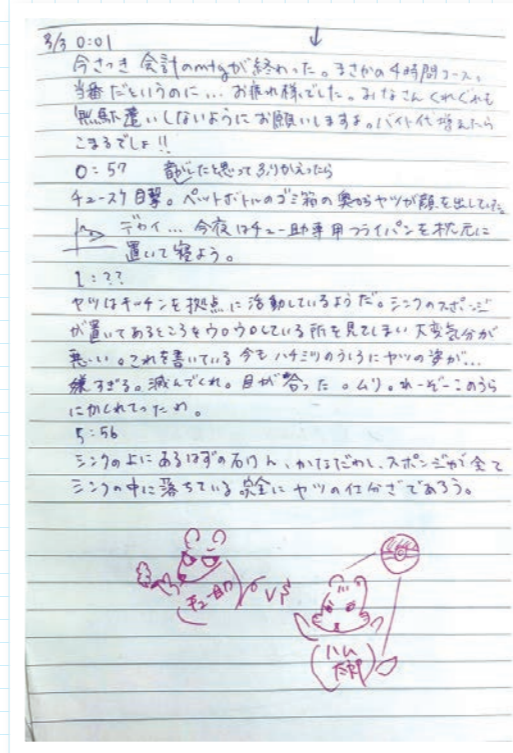 3/3 0:01
今さっき会計のmtgが終わった。まさかの4時間コース。
当番だというのに… お疲れ様でした。みなさんくれぐれも
無駄遣いしないようにお願いしますよ。バイト代増えたら
こまるでしょ!!
0:57 音がしたと思ってふりかえったら
チュースケ目撃。ペットボトルのゴミ箱の奥からヤツが顔を出していた
デカイ… 今夜はチュー助専用フライパンを枕元に
置いて寝よう。
1:??
ヤツはキッチンを拠点に活動しているようだ。シンクのスポンジ
が置いてあるところをウロウロしている所を見てしまい大変気分が
悪い。これを書いている今もハチミツのうしろにヤツの姿が…
嫌すぎる。滅んでくれ。目が合った。ムリ。れーぞーこのうら
にかくれてったわ。
5:56
シンクの上にあるはずの石けん、かなだわし、スポンジが全て
シンクの中に落ちている。完全にヤツの仕わざであろう。
チュー助
VS
ハム
太郎